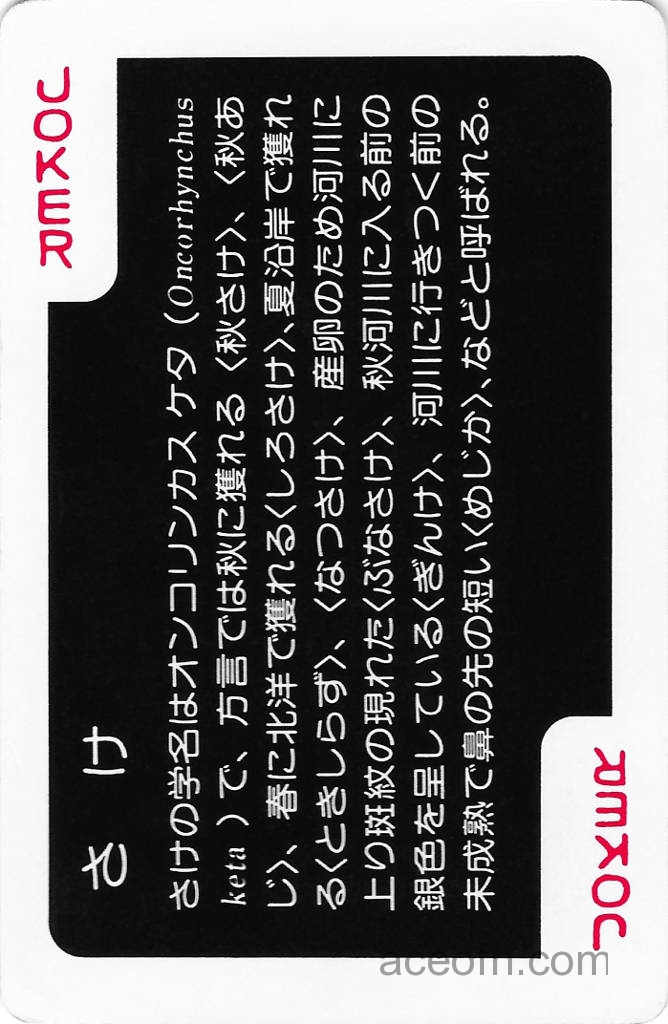 JOKER
さけ
さけの学名はオンコリンカス ケタ（Oncorhynchus
keta）で、方言では秋に獲れる〈秋さけ〉、〈秋あ
じ〉、春に北洋で獲れる〈しろさけ〉、夏沿岸で獲れ
る〈ときしらず〉、〈なつさけ〉、産卵のため河川に
上り斑紋の現れた〈ぶなさけ〉、秋河川に入る前の
銀色を呈している〈ぎんけ〉、河川に行きつく前の
未成熟で鼻の先の短い〈めじか〉、などと呼ばれる。
JOKER
aceofn.com